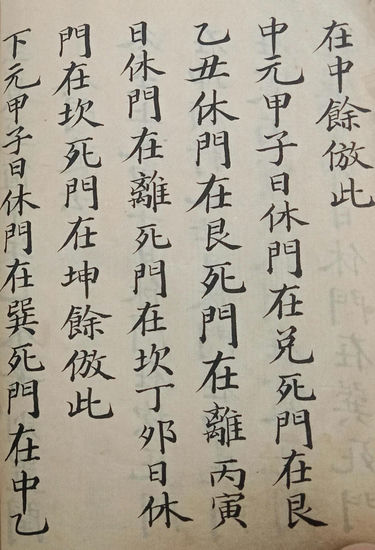 在中餘倣此
中元甲子日休門在兌死門在艮
乙丑休門在艮死門在離丙寅
日休門在離死門在坎丁夘日休
門在坎死門在坤餘倣此
下元甲子日休門在巽死門在中乙